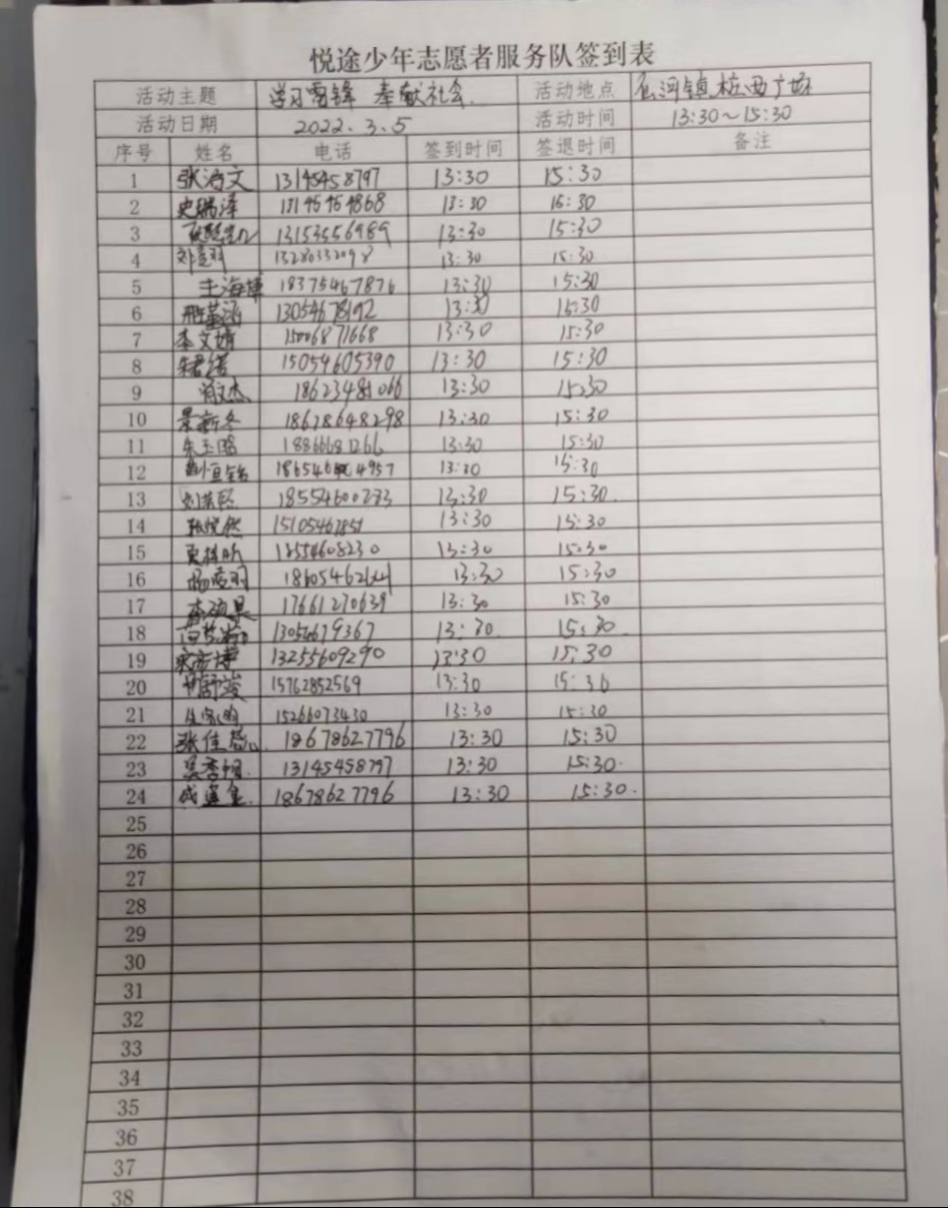 悦途少年志愿者服务队签到表
活动主题 学习雷锋 奉献社会. 活动地点 仙河镇桩西广场
活动日期 2022.3.5 活动时间 13:30~15:30
序号 姓名 电话 签到时间 签退时间 备注
1 张海文 13145458797 13:30 15:30
2 史瑞泽 13145454868 13:30 15:30
3 13153556989 13:30 15:30
4 13280332098 13:30 15:30
5 王海博 18375467876 13:30 15:30
6 13054678192 13:30 15:30
7 李文婧 15006871668 13:30 15:30
8 15054605390 13:30 15:30
9 肖文杰 18623481066 13:30 15:30
10 景新冬 18678648298 13:30 15:30
11 朱玉晗 13:30 15:30
12 13:30 15:30
13 18554600233 13:30 15:30.
14 张悦然 15105467851 13:30 15:30
15 18554608230 13:30 15:30
16 杨凌羽 13:30 15:30
17 17661270639 13:30 15:30
18 13054679367 13:30. 15:30.
19 宋彦博 13255609290 13:30 15:30
20 15762852569 13:30 15:30
21 15266073430 13:30 15:30
22 18678627796 13:30 15:30
23 吴季桐. 13145458797 13:30 15:30.
24 18678627796 13:30 15:30.
25
26
27
28
29
30
31
32
33
34
35
36
37
38